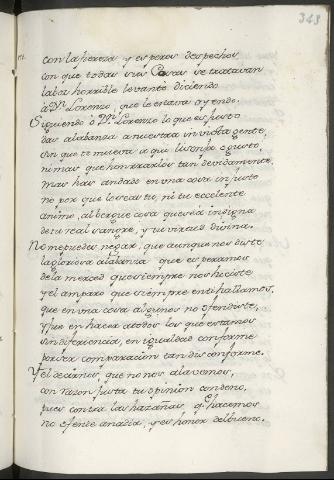 343
con la fiereza, y esperos despechos
con que todas sus Cosas se tratavan
la voz horrible levante diciendo
à Dn. Lorenzo, que le estava oyendo.
Siguiendo ò Dn. Lorenzo lo que es justo
das alabanza a nuestra invicta gente,
sin que te mueva a que lisonja, o gusto,
ni mas que honrrarlos tan devidamente,
mas has andado en una cosa injusto
no por que lo sea tu, ni tu eccelente
animo, albergue cosa que sea indigna
de tu real sangre, y tu virtud divina.
No me puedes negar, que aunque nos diste
la gloriosa alabanza que esperamos
de la merced que siempre nos hiciste
y el amparo que siempre en ti hallamos,
que en una cosa algunos no ofendiste,
y fue en hacer a todos los que estamos
sin diferiencia, en igualdad conforme
por ser comparacion tan disconforme.
Y el decirnos, que no nos alavemos,
con razon justa tu opinion condeno,
pues contra las hazañas q. hacemos
no ofende a nadia, y es honor del bueno.